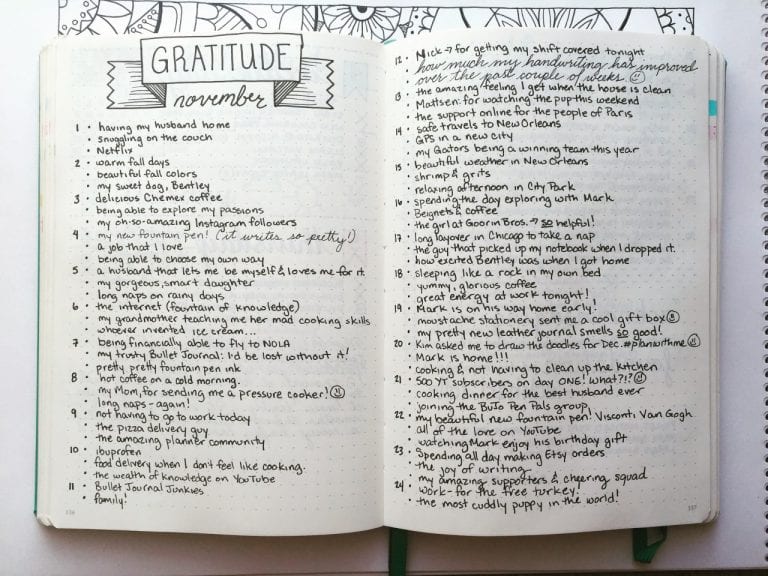 GRATITUDE
november
1 • having my husband home
• snuggling on the couch
• Netflix
2 • warm fall days
• beautiful fall colors
• my sweet dog, Bentley
3 • delicious Chemex coffee
• being able to explore my passions
• my oh-so-amazing Instagram followers
4 • my new fountain pen! (it writes so pretty!)
• a job that I love
• being able to choose my own way
5 • a husband that lets me be myself & loves me for it.
• my gorgeous, smart daughter
• long naps on rainy days
6 • the internet (fountain of knowledge)
• my grandmother teaching me her mad cooking skills
• whoever invented ice cream...
7 • being financially able to fly to NOLA
• my trusty Bullet Journal: I'd be lost without it!
• pretty pretty fountain pen ink
8 • hot coffee on a cold morning.
• my Mom, for sending me a pressure cooker! ☺
• long naps - again!
9 • not having to go to work today
• the pizza delivery guy
• the amazing planner community
10 • ibuprofen
• food delivery when I don't feel like cooking.
• the wealth of knowledge on YouTube
11 • Bullet Journal Junkies
• family!
136
12 • Nick → for getting my shift covered tonight
• how much my handwriting has improved
over the past couple of weeks. ☺
13 • the amazing feeling I get when the house is clean
• Mattsen: for watching the pup this weekend
• the support online for the people of Paris
14 • safe travels to New Orleans
• GPS in a new city
• my Gators being a winning team this year
15 • beautiful weather in New Orleans
• shrimp & grits
• relaxing afternoon in City Park
16 • spending the day exploring with Mark
• Beignets & coffee
• the girl at Goorin Bros. → so helpful!
17 • long layover in Chicago to take a nap
• the guy that picked up my notebook when I dropped it.
• how excited Bentley was when I got home
18 • sleeping like a rock in my own bed
• yummy, glorious coffee
• great energy at work tonight!
19 • Mark is on his way home early!
• moustache stationery sent me a cool gift box ☺
• my pretty new leather journal smells so good!
20 • Kim asked me to draw the doodles for Dec. #planwithme ☺
• Mark is home!!!
• cooking & not having to clean up the kitchen
21 • 500 YT subscribers on day ONE! What?!? ☺
• cooking dinner for the best husband ever
• joining the BuJo Pen Pals group
22 • my beautiful new fountain pen! Visconti Van Gogh
• all of the love on YouTube
• watching Mark enjoy his birthday gift
23 • Spending all day making Etsy orders
• the joy of writing
• my amazing supporters & cheering squad
24 • work - for the free turkey.
• the most cuddly puppy in the world!
137